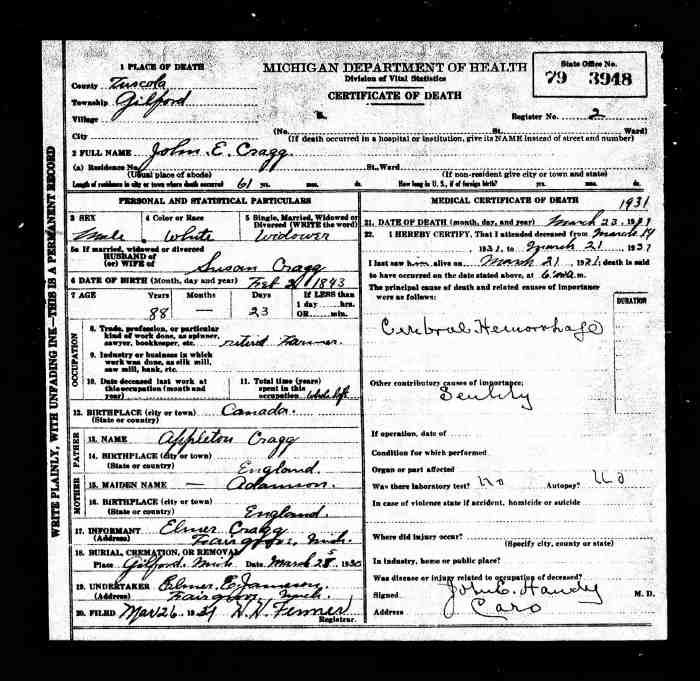 MICHIGAN DEPARTMENT OF HEALTH
Division of Vital Statistics
CERTIFICATE OF DEATH
State Office No.
79 3948
Register No. 2
1 PLACE OF DEATH
County Tuscola
Township Gilford
Village
City
(No. St. Ward)
(If death occurred in a hospital or institution, give its NAME instead of street and number)
2 FULL NAME John E. Cragg
(a) Residence No. St., Ward.
(Usual place of abode) (If non-resident give city or town and state)
Length of residence in city or town where death occurred 61 yrs. mos. ds. How long in U. S., if of foreign birth? yrs. mos. ds.
WRITE PLAINLY, WITH UNFADING INK—THIS IS A PERMANENT RECORD
PERSONAL AND STATISTICAL PARTICULARS
3 SEX 4 Color or Race 5 Single, Married, Widowed or Divorced (WRITE the word)
Male White Widower
5a If married, widowed or divorced
HUSBAND of
(or) WIFE of Susan Cragg
6 DATE OF BIRTH (Month, day and year) Feb 1843
7 AGE Years Months Days If LESS than
1 day hrs.
OR min.
88 — 23
OCCUPATION
8. Trade, profession, or particular
kind of work done, as spinner,
sawyer, bookkeeper, etc. retired Farmer
9. Industry or business in which
work was done, as silk mill,
saw mill, bank, etc.
10. Date deceased last work at
this occupation (month and
year)
11. Total time (years)
spent in this
occupation whole life
12. BIRTHPLACE (city or town) Canada.
(State or country)
FATHER
13. NAME Appleton Cragg
14. BIRTHPLACE (city or town)
(State or country) England.
MOTHER
15. MAIDEN NAME — Adamson.
16. BIRTHPLACE (city or town)
(State or country) England.
17. INFORMANT Elmer Cragg
(Address) Fairgrove, Mich.
18. BURIAL, CREMATION, OR REMOVAL
Place Gilford Mich Date March 25 1930
19. UNDERTAKER Elmer E. Jameson,
(Address) Fairgrove, Mich.
20. FILED Mar 26 1931 Registrar.
MEDICAL CERTIFICATE OF DEATH
1931
21. DATE OF DEATH (month, day, and year) March 23, 19
22. I HEREBY CERTIFY, That I attended deceased from March 14
1931, to March 21 1931
I last saw him alive on March 21 1931; death is said
to have occurred on the date stated above, at 6 m.
The principal cause of death and related causes of importance
were as follows:
DURATION
Cerebral Hemorrhage
Other contributory causes of importance:
Senility
If operation, date of
Condition for which performed
Organ or part affected
Was there laboratory test? No Autopsy? No
In case of violence state if accident, homicide or suicide
Where did injury occur?
(Specify city, county or state)
In industry, home or public place?
Was disease or injury related to occupation of deceased?
Signed John C. Handy M. D.
Address Caro